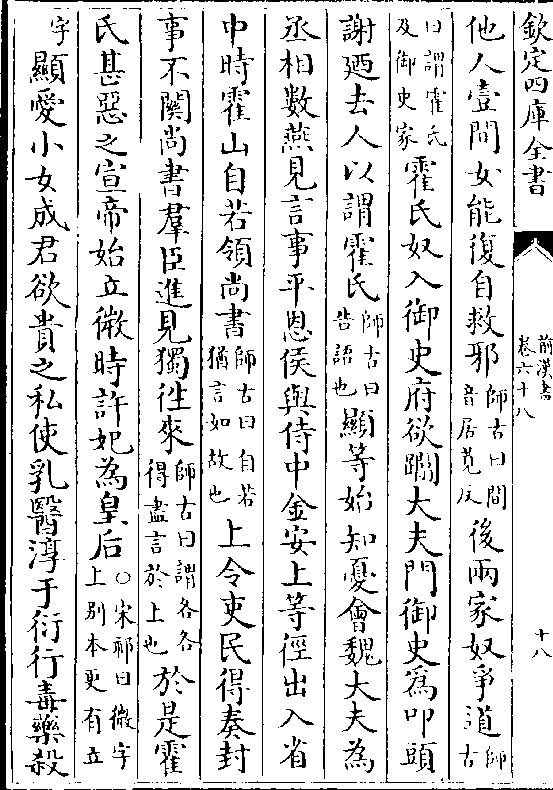 欽定四庫全書
前漢書
卷六十八
十八
他人壹間女能復自救邪師古曰間音居莧反後兩家奴爭道師古
曰謂霍氏及御史家霍氏奴入御史府欲蹋大夫門御史為叩頭
謝廼去人以謂霍氏師古曰告語也顯等始知憂會魏大夫為
丞相數燕見言事平恩侯與侍中金安上等徑出入省
中時霍山自若領尚書師古曰自若猶言如故也上令吏民得奏封
事不關尚書羣臣進見獨徃來師古曰謂各各得盡言於上也於是霍
氏甚惡之宣帝始立微時許妃為皇后○宋祁曰微字上别本更有立
字顯愛小女成君欲貴之私使乳醫淳于衍行毒藥殺